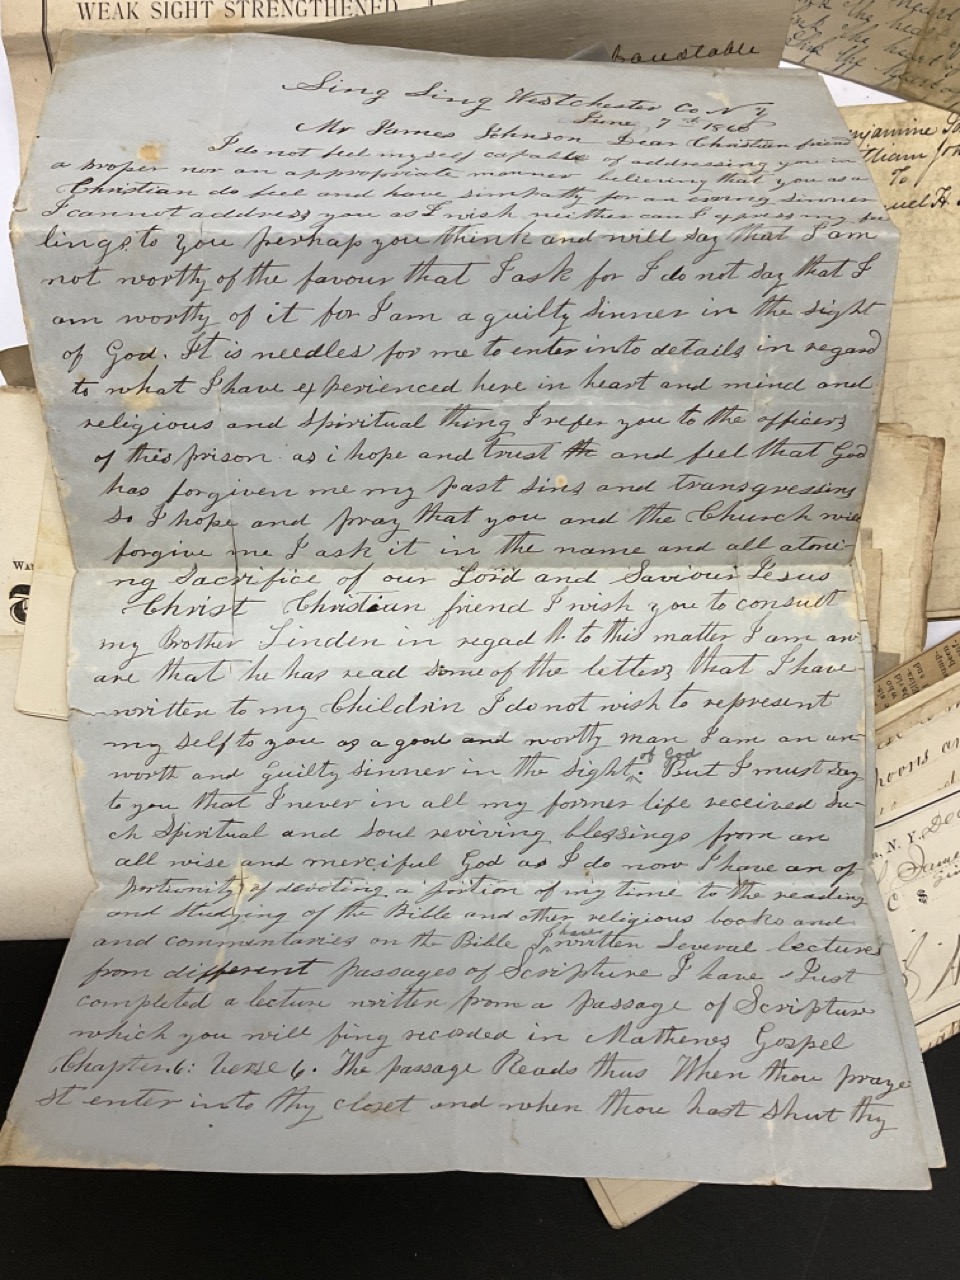 WEAK SIGHT STRENGTHENED
Sing Sing Westchester Co N Y
June 7th 1860
Mr James Johnson Dear Christian friend
I do not feel my self capable of addressing you in
a proper nor an appropriate manner believing that you as a
Christian do feel and have simpathy for an erring sinner
I cannot address you as I wish neither can I express my fee
lings to you perhap you think and will say that I am
not worthy of the favour that I ask for I do not say that I
am worthy of it for I am a guilty sinner in the sight
of God. It is needles for me to enter into details in regard
to what I have experienced here in heart and mind and
religious and Spiritual thing I refer you to the officers
of this prison as i hope and trust th and feel that God
has forgiven me my past sins and transgressins
so I hope and pray that you and the Church will
forgive me I ask it in the name and all atoni-
ng Sacrifice of our Lord and Saviour Jesus
Christ Christian friend I wish you to consult
my Brother Linden in regad to this matter I am aw
are that he has read some of the letters that I have
written to my Children I do not wish to represent
my self to you as a good and worthy man I am an un-
worth and guilty sinner in the sight of God. But I must say
to you that I never in all my former life received su-
ch Spiritual and soul reviving blessings from an
all wise and merciful God as I do now I have an op
portunity of devoting a portion of my time to the reading
and studying of the Bible and other religious books and
and commentaries on the Bible I have written Several lectures
from different passages of Scripture I have Just
completed a lecture written from a passage of Scripture
which you will fing recorded in Mathews Gospel
Chapter.6: Verse 6. The passage Reads thus When thou praye
st enter into thy closet and when thou hast Shut thy
Constable
To
N. Y. Dec